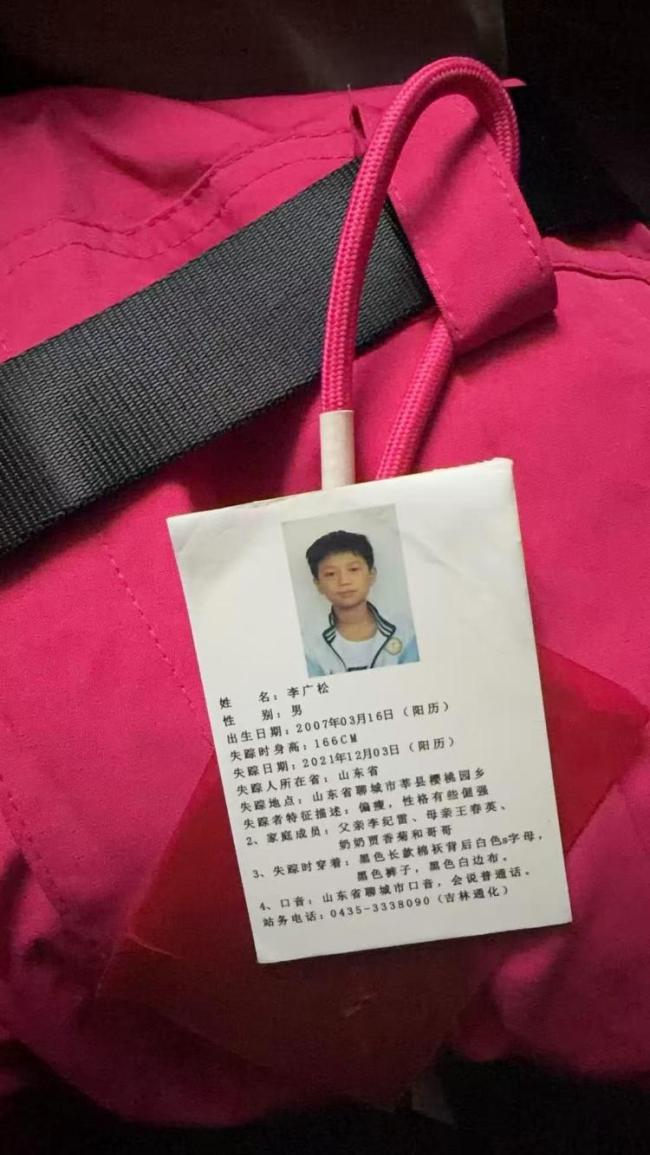 姓　　名：李广松
性　　别：男
出生日期：2007年03月16日（阳历）
失踪时身高：166CM
失踪日期：2021年12月03日（阳历）
失踪人所在省：山东省
失踪地点：山东省聊城市莘县樱桃园乡
失踪者特征描述：偏瘦，性格有些倔强
2、家庭成员：父亲李纪雷、母亲王春英、
奶奶贾香菊和哥哥
3、失踪时穿着：黑色长款棉袄背后白色s字母，
黑色裤子，黑色白边布。
4、口音：山东省聊城市口音，会说普通话。
站务电话：0435-3338090（吉林通化）